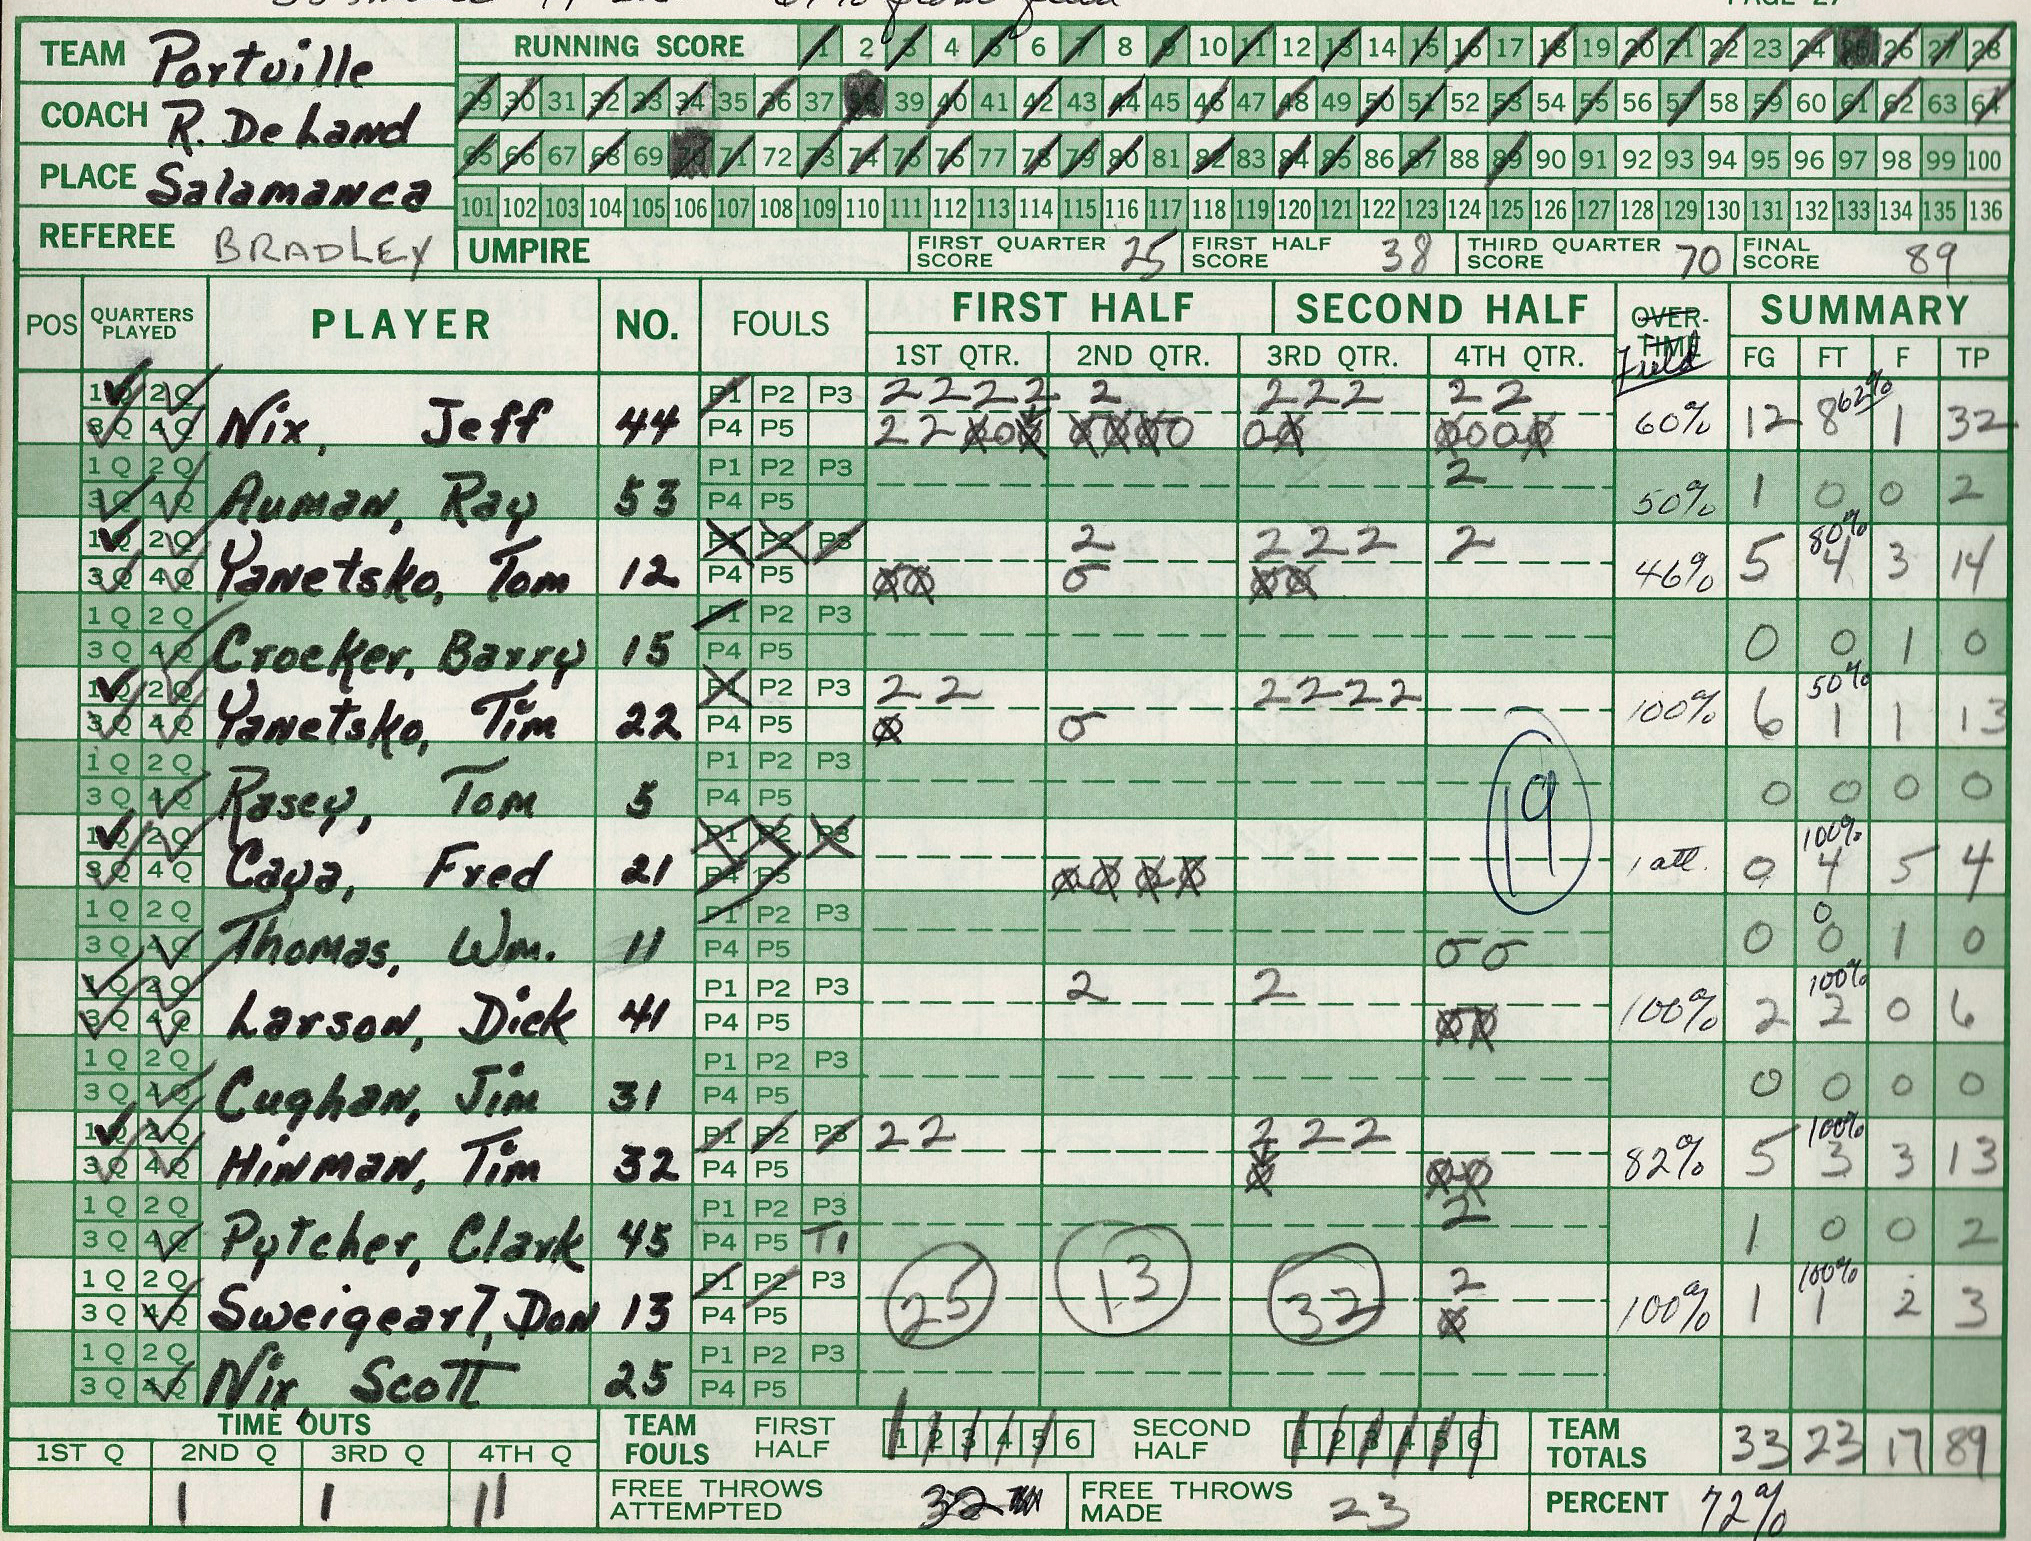 PAGE 27
TEAM Portville
COACH R. DeLand
PLACE Salamanca
REFEREE BRADLEY
RUNNING SCORE 1 2 3 4 5 6 7 8 9 10 11 12 13 14 15 16 17 18 19 20 21 22 23 24 25 26 27 28
29 30 31 32 33 34 35 36 37 38 39 40 41 42 43 44 45 46 47 48 49 50 51 52 53 54 55 56 57 58 59 60 61 62 63 64
65 66 67 68 69 70 71 72 73 74 75 76 77 78 79 80 81 82 83 84 85 86 87 88 89 90 91 92 93 94 95 96 97 98 99 100
101 102 103 104 105 106 107 108 109 110 111 112 113 114 115 116 117 118 119 120 121 122 123 124 125 126 127 128 129 130 131 132 133 134 135 136
UMPIRE FIRST QUARTER SCORE 25 FIRST HALF SCORE 38 THIRD QUARTER SCORE 70 FINAL SCORE 89
POS QUARTERS PLAYED PLAYER NO. FOULS FIRST HALF SECOND HALF OVER-TIME Field SUMMARY
1ST QTR. 2ND QTR. 3RD QTR. 4TH QTR. FG FT F TP
1Q 2Q P1 P2 P3 2 2 2 2 2 2 2 2 2 2 62%
3Q 4Q Nix, Jeff 44 P4 P5 2 2 0 0 0 0 0 0 0 0 0 0 0 0 0 60% 12 8 1 32
1Q 2Q P1 P2 P3 2
3Q 4Q Auman, Ray 53 P4 P5 50% 1 0 0 2
1Q 2Q P1 P2 P3 2 2 2 2 2 80%
3Q 4Q Yanetsko, Tom 12 P4 P5 0 0 0 0 0 46% 5 4 3 14
1Q 2Q P1 P2 P3
3Q 4Q Crocker, Barry 15 P4 P5 0 0 1 0
1Q 2Q P1 P2 P3 2 2 2 2 2 2 50%
3Q 4Q Yanetsko, Tim 22 P4 P5 0 0 100% 6 1 1 13
1Q 2Q P1 P2 P3
3Q 4Q Rasey, Tom 5 P4 P5 19 0 0 0 0
1Q 2Q P1 P2 P3 100%
3Q 4Q Caya, Fred 21 P4 P5 0 0 0 0 1 att. 0 4 5 4
1Q 2Q P1 P2 P3 0
3Q 4Q Thomas, Wm. 11 P4 P5 0 0 0 0 1 0
1Q 2Q P1 P2 P3 2 2 100%
3Q 4Q Larson, Dick 41 P4 P5 0 0 100% 2 2 0 6
1Q 2Q P1 P2 P3
3Q 4Q Cughan, Jim 31 P4 P5 0 0 0 0
1Q 2Q P1 P2 P3 2 2 2 2 2 100%
3Q 4Q Hinman, Tim 32 P4 P5 0 0 0 82% 5 3 3 13
1Q 2Q P1 P2 P3 2
3Q 4Q Pytcher, Clark 45 P4 P5 T1 1 0 0 2
1Q 2Q P1 P2 P3 25 13 32 2 100%
3Q 4Q Sweigeart, Don 13 P4 P5 0 100% 1 1 2 3
1Q 2Q P1 P2 P3
3Q 4Q Nix Scott 25 P4 P5
TIME OUTS TEAM FOULS FIRST HALF 1 2 3 4 5 6 SECOND HALF 1 2 3 4 5 6 TEAM TOTALS 33 23 17 89
1ST Q 2ND Q 3RD Q 4TH Q
1 1 11 FREE THROWS ATTEMPTED 32 FREE THROWS MADE 23 PERCENT 72%